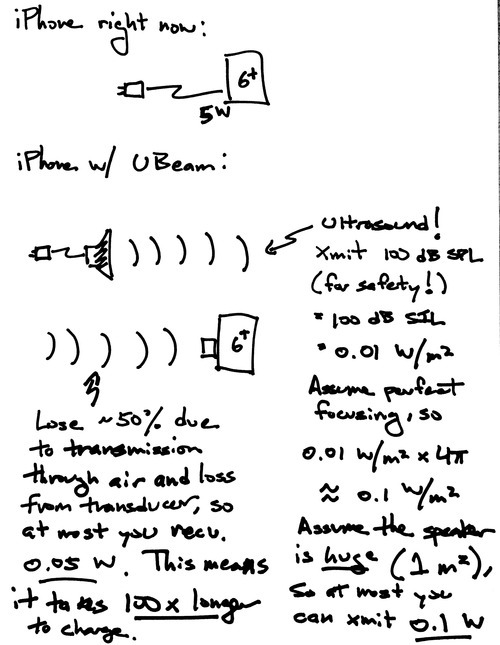 iPhone right now:
6+
5W
iPhone w/ UBeam:
Ultrasound!
Xmit 100 dB SPL
(for safety!)
= 100 dB SIL
= 0.01 W/m²
6+
Assume perfect
focusing, so
0.01 W/m² x 4π
≈ 0.1 W/m²
Assume the speaker
is huge (1 m²),
So at most you
can xmit 0.1 W
Lose ~50% due
to transmission
through air and loss
from transducer, so
at most you recv.
0.05 W. This means
it takes 100x longer
to charge.